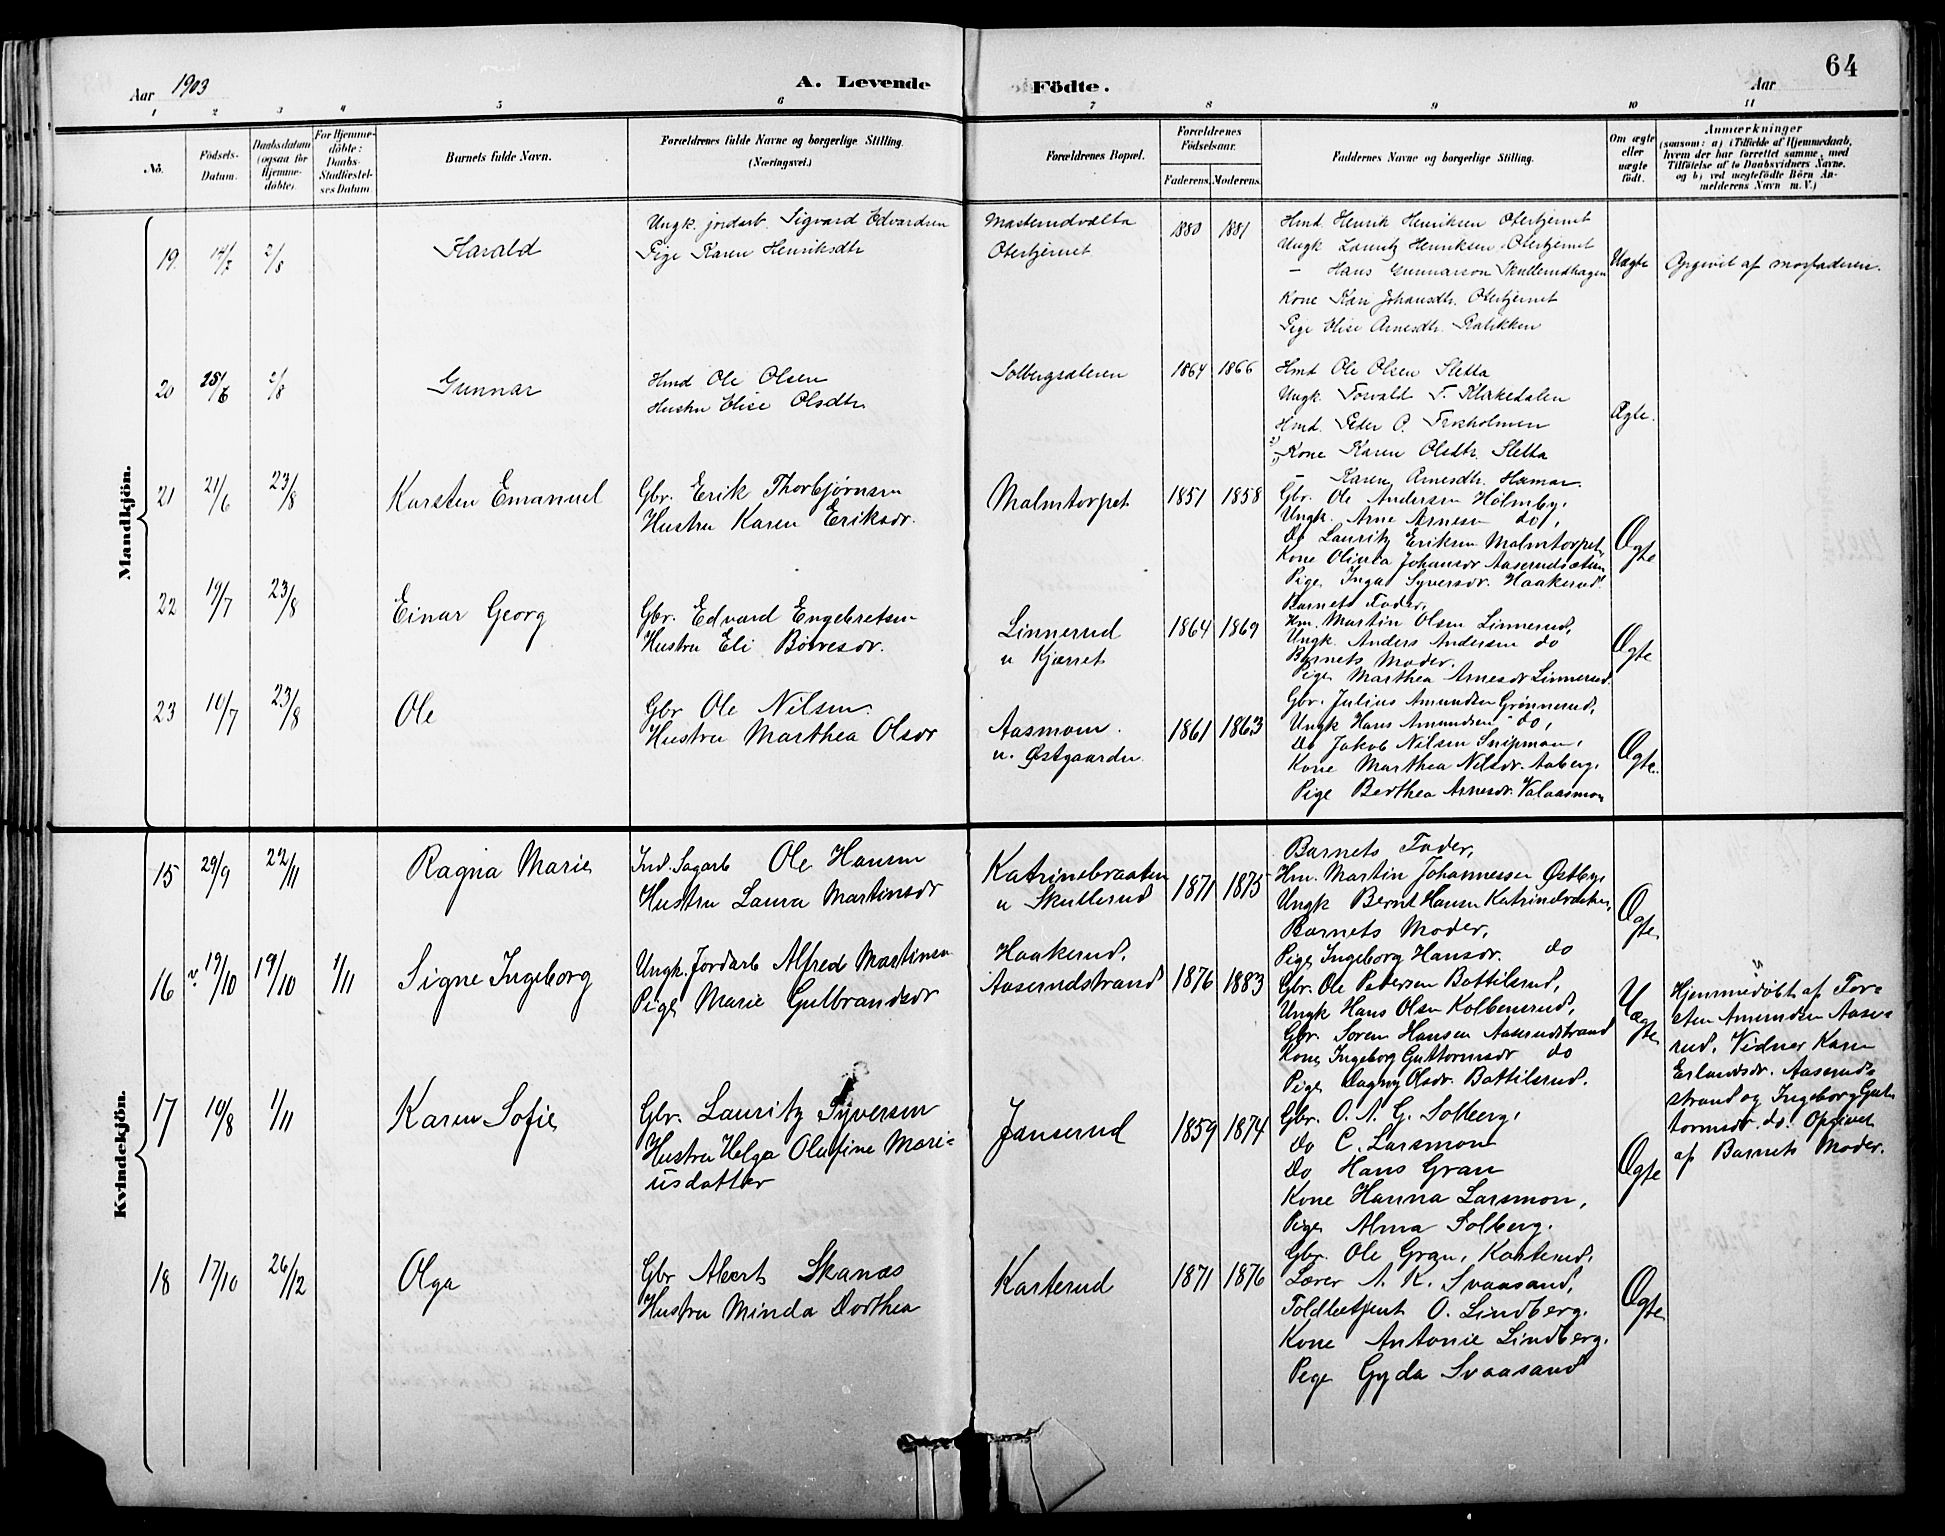 64
Aar 1903
A. Levende Födte.
Aar
1 2 3 4 5 6 7 8 9 10 11
No.
Födsels-Datum.
Daabsdatum (ogsaa for Hjemmedöbte).
For Hjemmedöbte: Daabs-Stadfæstelses Datum
Barnets fulde Navn.
Forældrenes fulde Navne og borgerlige Stilling. (Næringsvei.)
Forældrenes Bopæl.
Forældrenes Födselsaar.
Faderens. Moderens.
Faddernes Navne og borgerlige Stilling.
Om ægte eller uægte födt.
Anmærkninger (saasom: a) i Tilfælde af Hjemmedaab, hvem der har forrettet samme, med Tilföielse af to Daabsvidners Navne. og b) ved uægtefödte Börn Anmelderens Navn m. V.)
Mandkjön.
19. 14/7 2/8 Harald
Ungk. jordarb. Sigvard Edvardsen
Pige Karen Henriksdtr
Masterudvolta
Otertjernet
1880 1881
Hmd Henrik Henriksen Otertjernet
Ungk Lauritz Henriksen Otertjernet
— Hans Gunnarson Skullerudhagen
Kone Kari Johansdtr. Otertjernet
Pige Elise Arnesdtr.
Uægte
Opgivet af morfaderen.
20 28/6 2/8 Gunnar
Hmd Ole Olsen
Hustru Elise Olsdtr
Solbergsæteren
1864 1866
Hmd Ole Olsen Sletta
Ungk. Torvald T. Kirkedalen
Hmd. Peder O.
Kone Karen Olsdtr. Sletta
— Karen Arnesdtr. Hamar.
Ægte.
21 21/6 23/8 Karsten Emanuel
Gbr. Erik Thorbjørnsen
Hustru Karen Eriksdr.
Malmtorpet
1851 1858
Gbr. Ole Andersen Holmby,
Ungk. Arne Arnesen do,
Do Lauritz Eriksen Malmtorpet,
Kone Olivia Johansdr Aaserudsætern
Pige Inga Syversdr. Haakerud.
Ægte
22 19/7 23/8 Einar Georg
Gbr. Edvard Engebretsen
Hustru Eli Børresdr.
Linnerud
u Kjærret
1864 1869
Barnets Fader,
Hm. Martin Olsen Linnerud,
Ungk. Anders Andersen do
Barnets Moder.
Pige Marthea Arnesdr Linnerud.
Ægte
23 10/7 23/8 Ole
Gbr Ole Nilsen.
Hustru Marthea Olsdr
Aasmoen.
u. Østgaarden.
1861 1863
Gbr. Julius Amundsen Grønnerud,
Ungk Hans Amundsen do,
Do Jakob Nilsen Snipmoen,
Kone Marthea Nilsdr. Aaberg,
Pige Berthea Arnesdr. Valaasmoen
Ægte.
Kvindekjön.
15 29/9 22/11 Ragna Marie
Ind. Sagarb Ole Hansen
Hustru Laura Martinsdr
Katrinebraaten
u Skullerud
1871 1875
Barnets Fader,
Hm. Martin Johannessen Østby,
Ungk Bernt Hansen Katrinebraaten,
Barnets Moder,
Pige Ingeborg Hansdr. do
Ægte
16 19/10 19/10 1/11 Signe Ingeborg
Ungk. Jordarb Alfred Martinsen
Pige Marie Gulbrandsdr
Haakerud,
Aaserudstrand
1876 1883
Gbr. Ole Pedersen Bottilsrud,
Ungk Hans Olsen Kolbeinsrud,
Gbr. Søren Hansen Aaserudstrand
Kone Ingeborg Guttormsdr do
Pige Dagny Olsdr. Bottilsrud.
Uægte
Hjemmedøbt af Tor-
sten Amundsen Aase-
rud. Vidner Karen
Erlandsdr. Aaserud-
strand og Ingeborg Gut-
tormsdr. do. Opgivet
af Barnets Moder.
17 10/8 1/11 Karen Sofie
Gbr. Lauritz Syversen
Hustru Helga Olufine Mari-
usdatter
Janserud
1859 1874
Gbr. O. A. G. Solberg,
Do C. Larsmon
Do Hans Gran
Kone Hanna Larsmon,
Pige Alma Solberg.
Ægte
18 17/10 26/12 Olga
Gbr Albert Skanås
Hustru Minda Dorthea
Karterud
1871 1876
Gbr. Ole Gran, Karterud,
Lærer A. K. Svaasand,
Toldbetjent O. Lindberg.
Kone Antonie Lindberg.
Pige Gyda Svaasand
Ægte